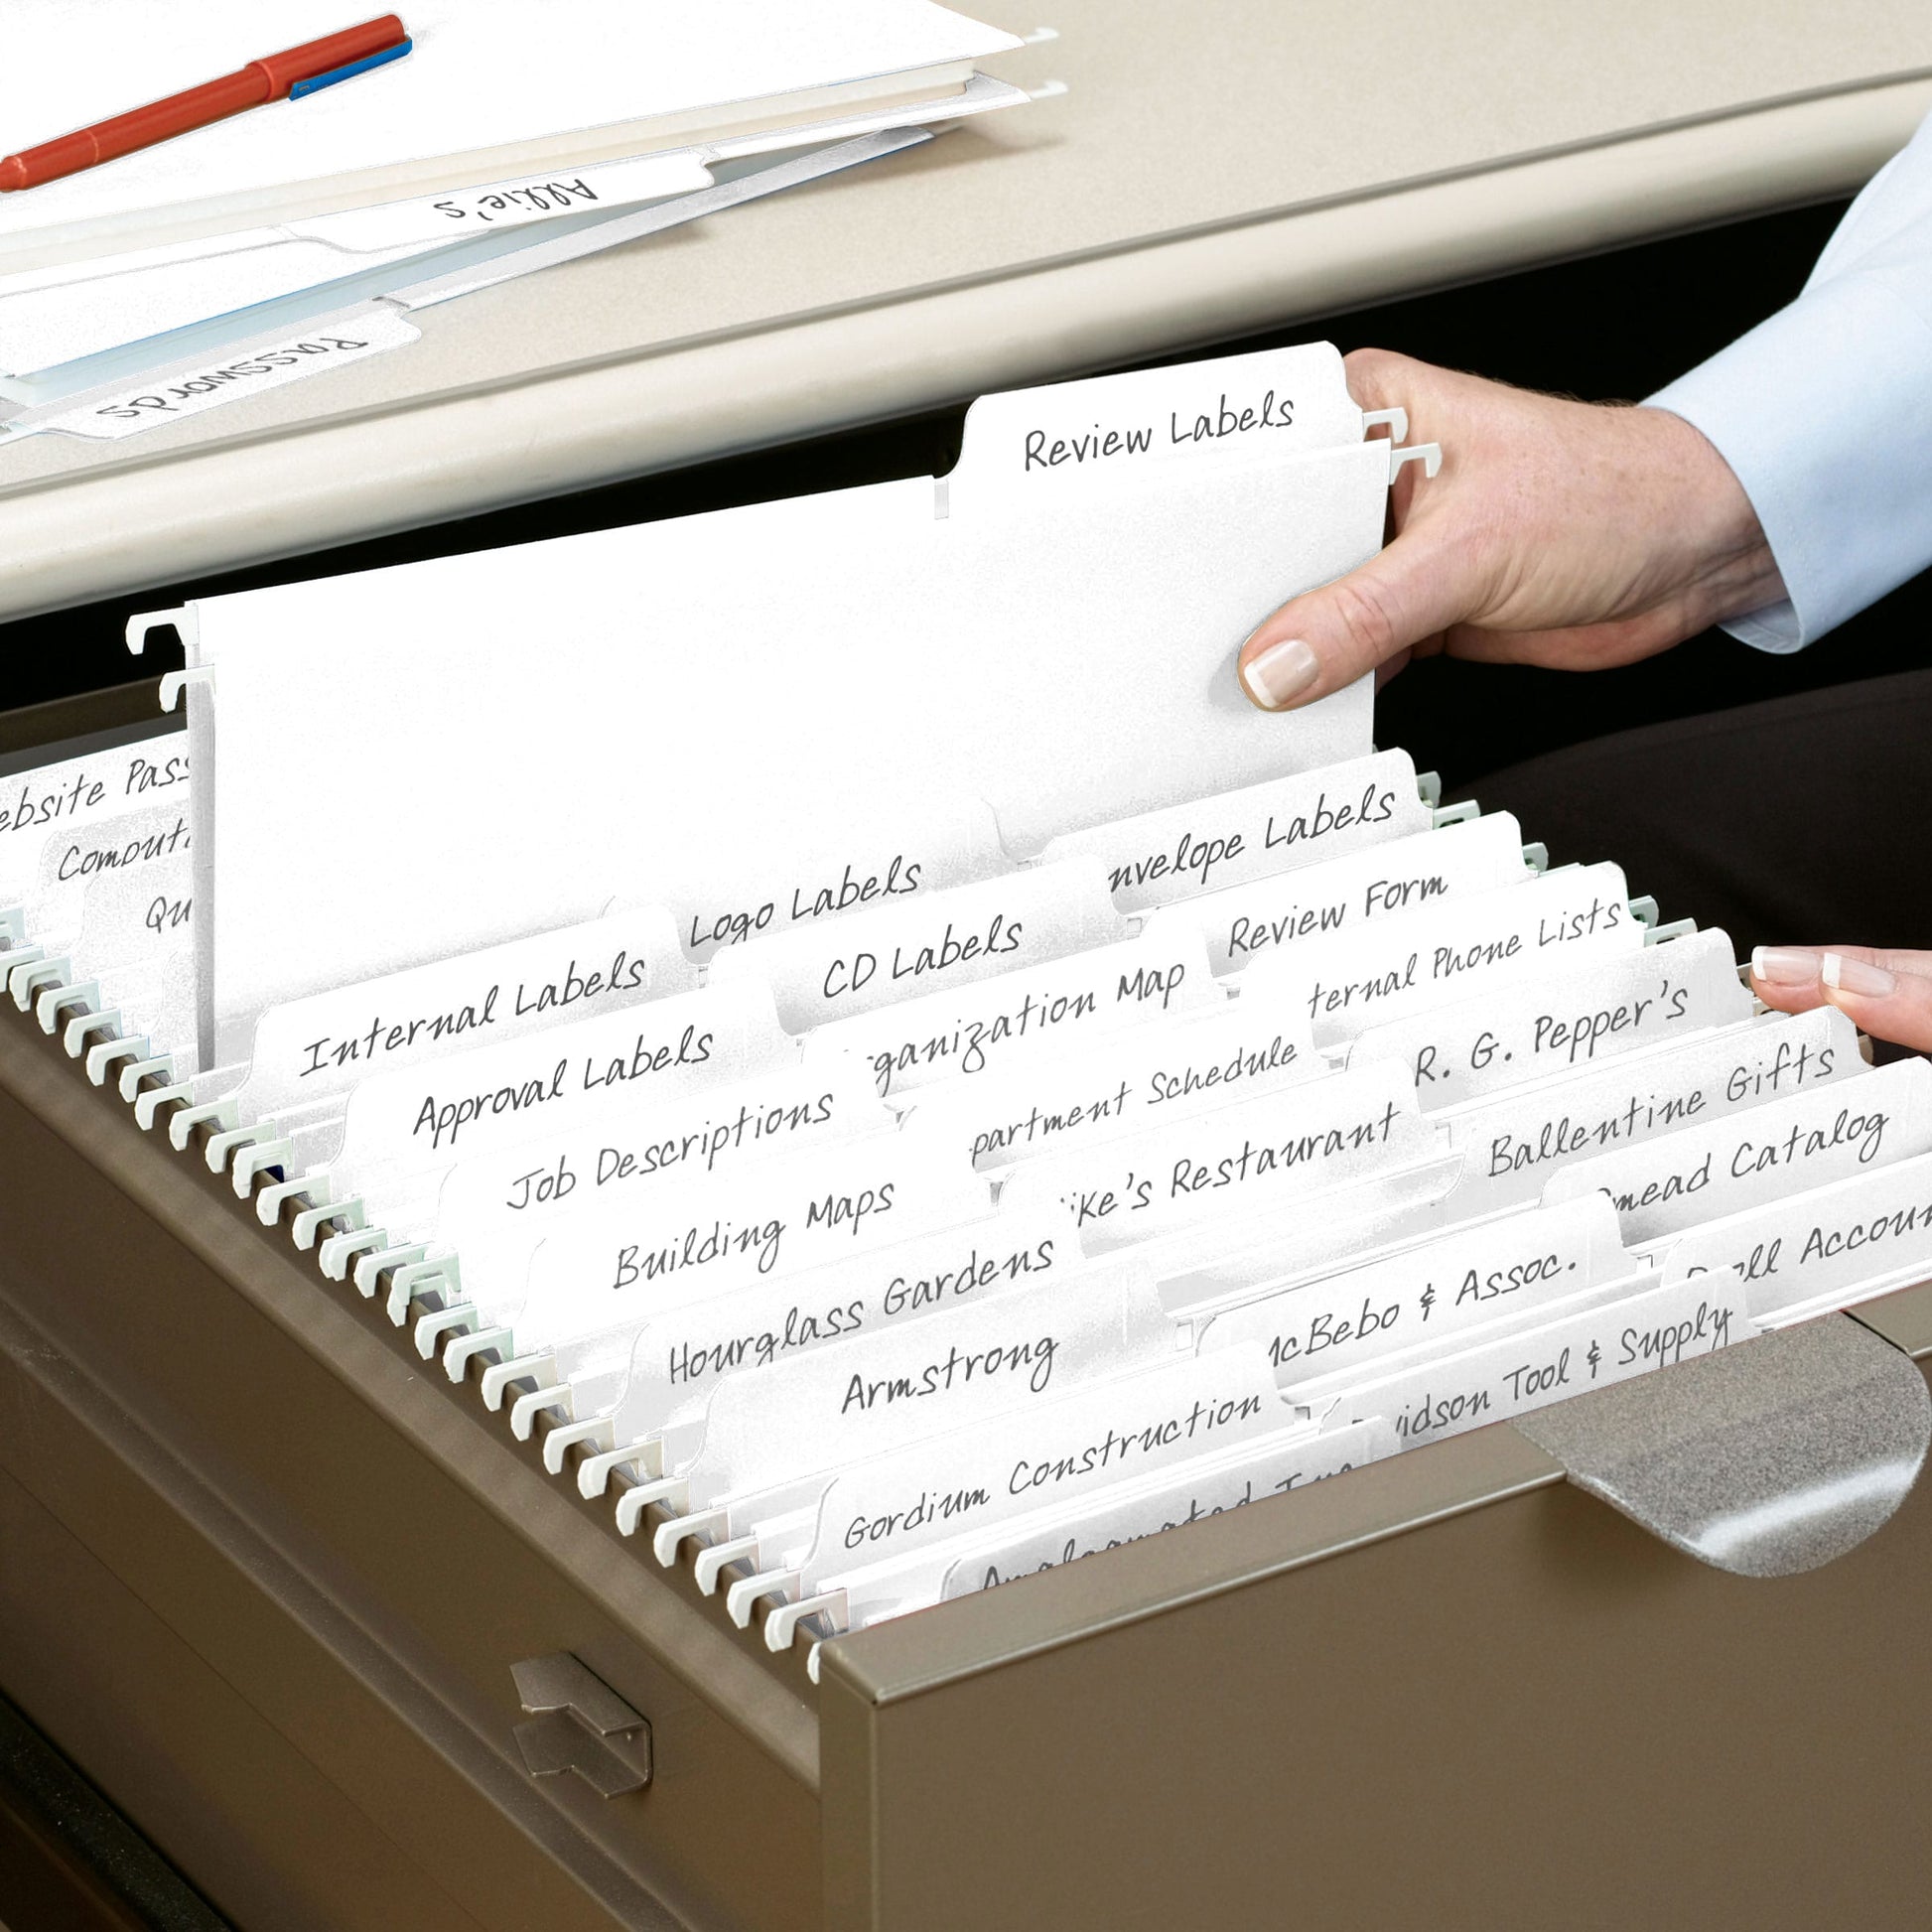 Allie's
Passwords
Review Labels
ebsite Pass
Comput
Qu
nvelope Labels
Logo Labels
Review Form
CD Labels
Internal Labels
ternal Phone Lists
ganization Map
Approval Labels
R. G. Pepper's
partment Schedule
Job Descriptions
Ballentine Gifts
ike's Restaurant
Building Maps
mead Catalog
Hourglass Gardens
ll Accoun
cBebo & Assoc.
Armstrong
idson Tool & Supply
Gordium Construction
Amalgamated Inc